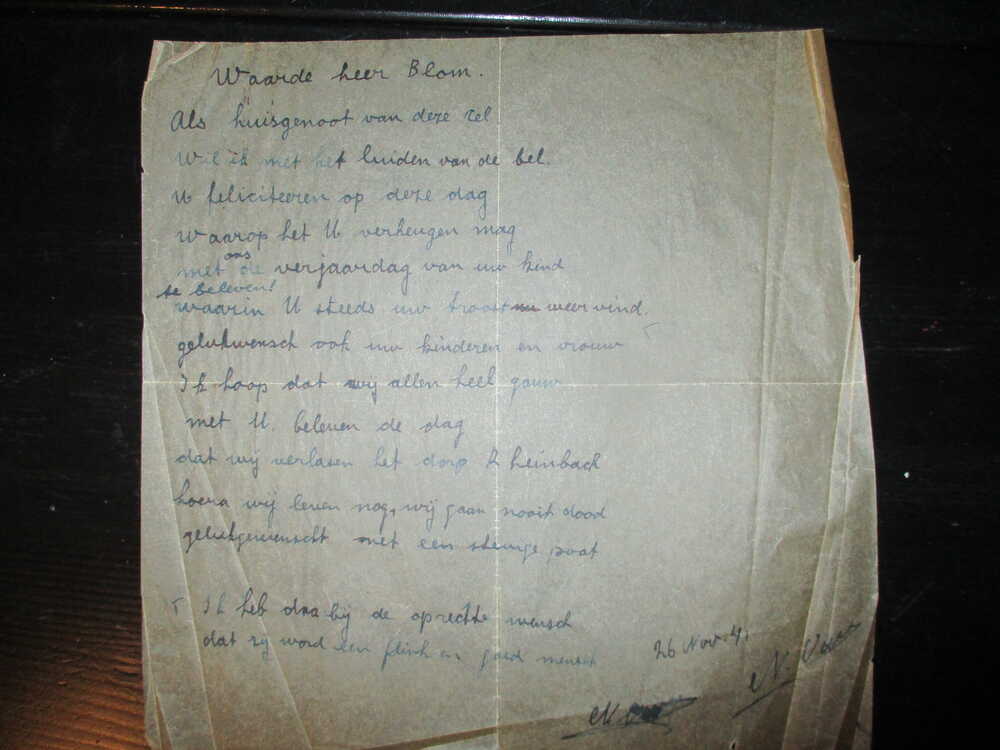 Waarde heer Blom.
Als huisgenoot van deze cel
Wil ik met het luiden van de bel.
U feliciteeren op deze dag
Waarop het U verheugen mag
ons
met de verjaardag van uw kind
te beleven!
waarin U steeds uw troost weer vind.
gelukwensch ook uw kinderen en vrouw
Ik hoop dat wij allen heel gauw
met U. beleven de dag
dat wij verlaten het dorp Rheinbach
hoera wij leven nog, wij gaan nooit dood
gelukgewenscht met een stevige poot
Ik heb daa bij de oprechte wensch
dat zij word een flink en goed mensch
26 Nov. 4